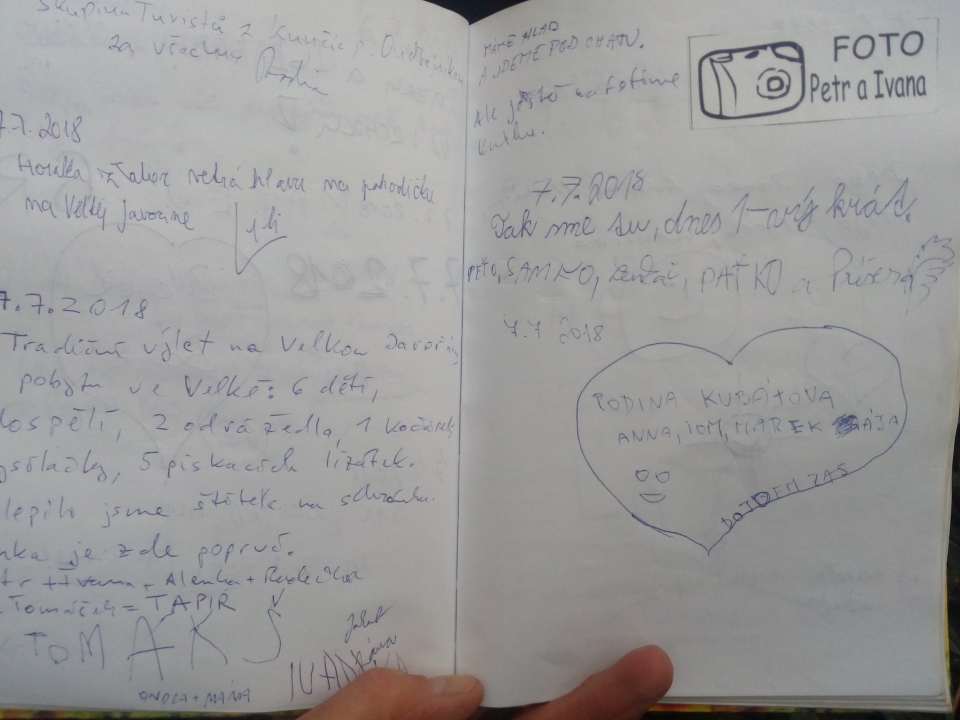 Skupina Turistů z Kunčic p. Ondřejníkem
za všechny
7.7.2018
na pohodičku
na Velkej Javorine
7.7.2018
Tradiční výlet na Velkou Javořinu
pobytu ve Velké: 6 dětí,
dospělí, 2 odrážedla, 1 kočárek
5 pískacích lízátek.
jsme štítek na schránku.
je zde poprvé.
+ Ivana + Alenka +
Tomáček = TAPÍR
TOM
MÁME HLAD
A JDEME POD CHATU.
Ale ještě nafotíme
knihu.
FOTO
Petr a Ivana
7.7.2018
Tak sme tu, dnes 1-vý krát.
PEŤO, SAMNO, PAŤKO a Príšera
7.7 2018
RODINA KUBÁTOVA
ANNA, TOM, MAREK
DOJDEM ZAS